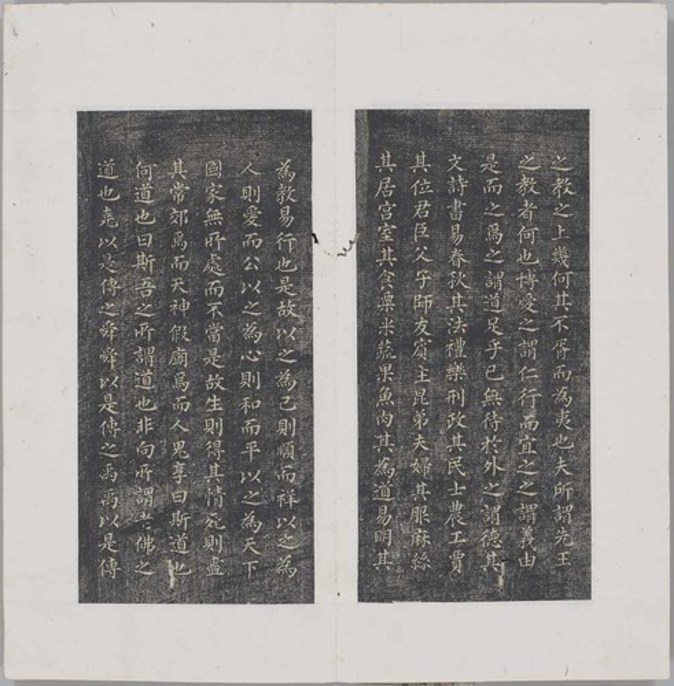 之教之上幾何其不胥而為夷也夫所謂先王
之教者何也博愛之謂仁行而宜之之謂義由
是而之焉之謂道足乎己無待於外之謂德其
文詩書易春秋其法禮樂刑政其民士農工賈
其位君臣父子師友賓主昆弟夫婦其服麻絲
其居宮室其食粟米蔬果魚肉其為道易明其
為教易行也是故以之為己則順而祥以之為
人則愛而公以之為心則和而平以之為天下
國家無所處而不當是故生則得其情死則盡
其常郊焉而天神假廟焉而人鬼享曰斯道也
何道也曰斯吾之所謂道也非向所謂老佛之
道也堯以是傳之舜舜以是傳之禹禹以是傳